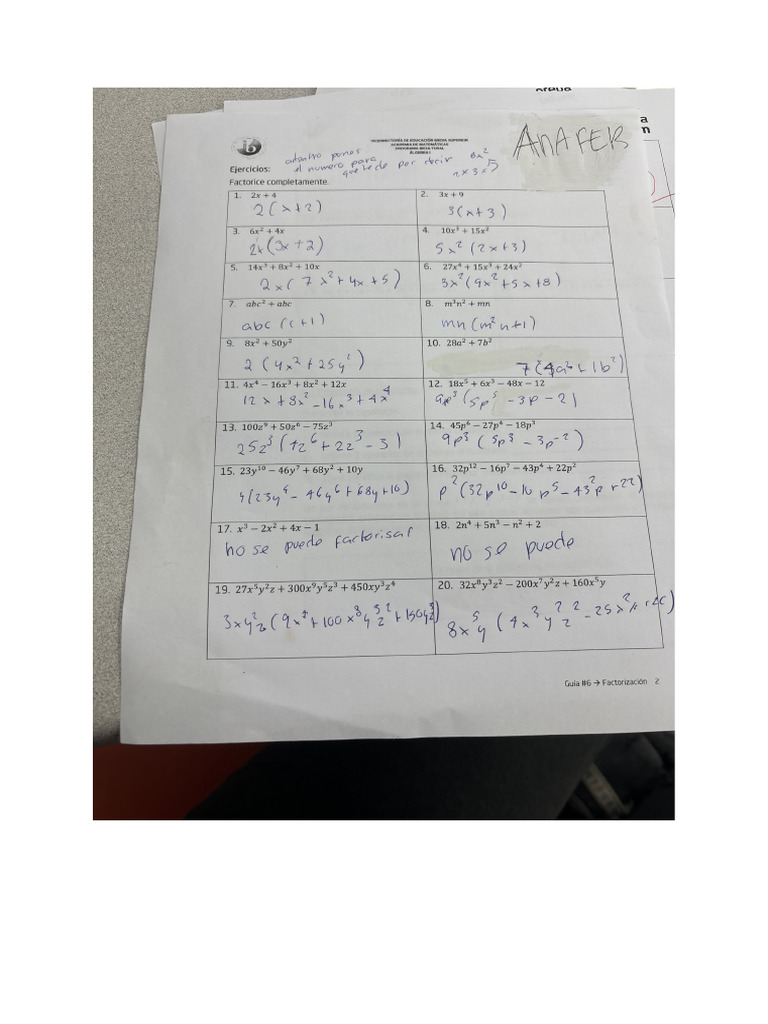 a
n
VICERRECTORÍA DE EDUCACIÓN MEDIA SUPERIOR
ACADEMIA DE MATEMÁTICAS
ÁLGEBRA I
ANAFER
adentro pones
el numero para
que te de por decir
6x²
2x3=5
Ejercicios:
Factorice completamente.
1. 2x + 4
2(x+2)
2. 3x + 9
3(x+3)
3. 6x² + 4x
2x(3x+2)
4. 10x³ + 15x²
5x²(2x+3)
5. 14x³ + 8x² + 10x
2x(7x²+4x+5)
6. 27x⁴ + 15x³ + 24x²
3x²(9x²+5x+8)
7. abc² + abc
abc(c+1)
8. m³n² + mn
mn(m²n+1)
9. 8x² + 50y²
2(4x²+25y²)
10. 28a² + 7b²
7(4a²+1b²)
11. 4x⁴ − 16x³ + 8x² + 12x
12x+8x²-16x³+4x⁴
12. 18x⁵ + 6x³ − 48x − 12
9p³(5p³-3p-2)
13. 100z⁹ + 50z⁶ − 75z³
25z³(4z⁶+2z³-3)
14. 45p⁶ − 27p⁴ − 18p³
9p³(5p³-3p-2)
15. 23y¹⁰ − 46y⁷ + 68y² + 10y
y(23y⁹-46y⁶+68y+10)
16. 32p¹² − 16p⁷ − 43p⁴ + 22p²
p²(32p¹⁰-16p⁵-43p²+22)
17. x³ − 2x² + 4x − 1
no se puede factorisar
18. 2n⁴ + 5n³ − n² + 2
no se puede
19. 27x⁵y²z + 300x⁹y⁵z³ + 450xy³z⁴
3xy²z(9x⁴+100x⁸y³z²+150yz³)
20. 32x⁸y³z² − 200x⁷y²z + 160x⁵y
8x⁵y(4x³y²z²-25x²
Guía #6 → Factorización 2